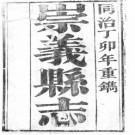 同治丁卯年重鐫
崇義縣志